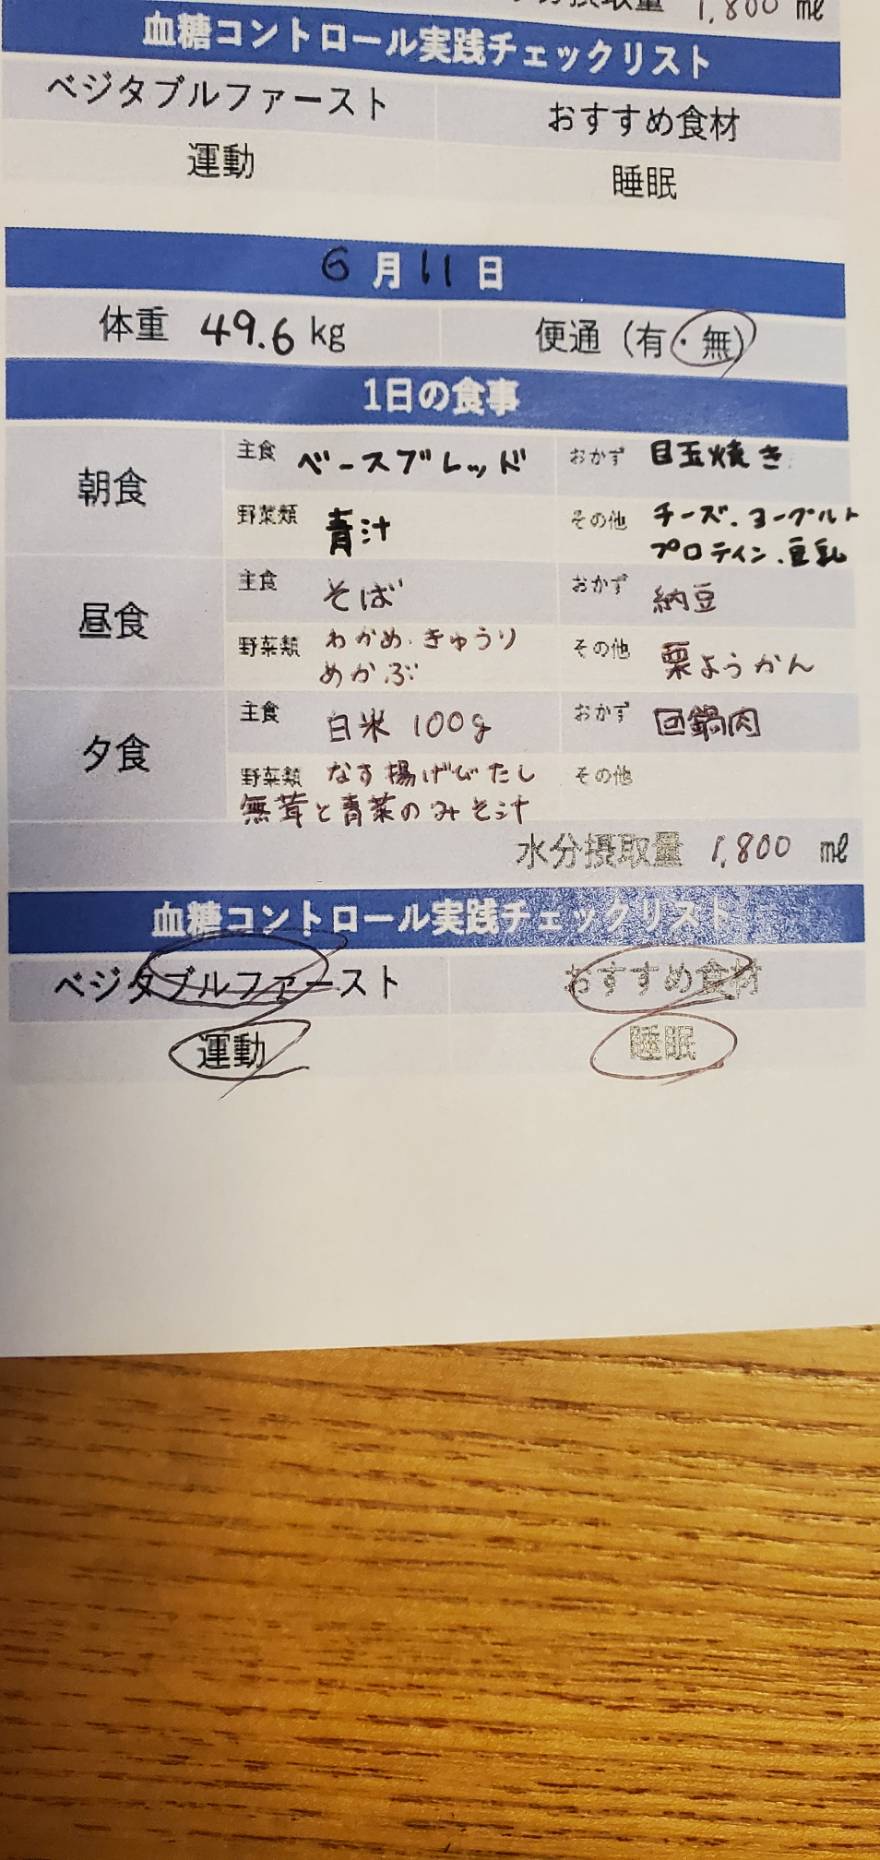 1,800 ml
血糖コントロール実践チェックリスト
ベジタブルファースト おすすめ食材
運動 睡眠
6月11日
体重 49.6 kg 便通（有・無）
1日の食事
朝食
主食 ベースブレッド おかず 目玉焼き
野菜類 青汁 その他 チーズ.ヨーグルト
プロテイン.豆乳
昼食
主食 そば おかず 納豆
野菜類 わかめ.きゅうり
めかぶ
その他 栗ようかん
夕食
主食 白米 100g おかず 回鍋肉
野菜類 なす揚げびたし その他
無茸と青菜のみそ汁
水分摂取量 1,800 ml
血糖コントロール実践チェックリスト
ベジタブルファースト おすすめ食材
運動 睡眠